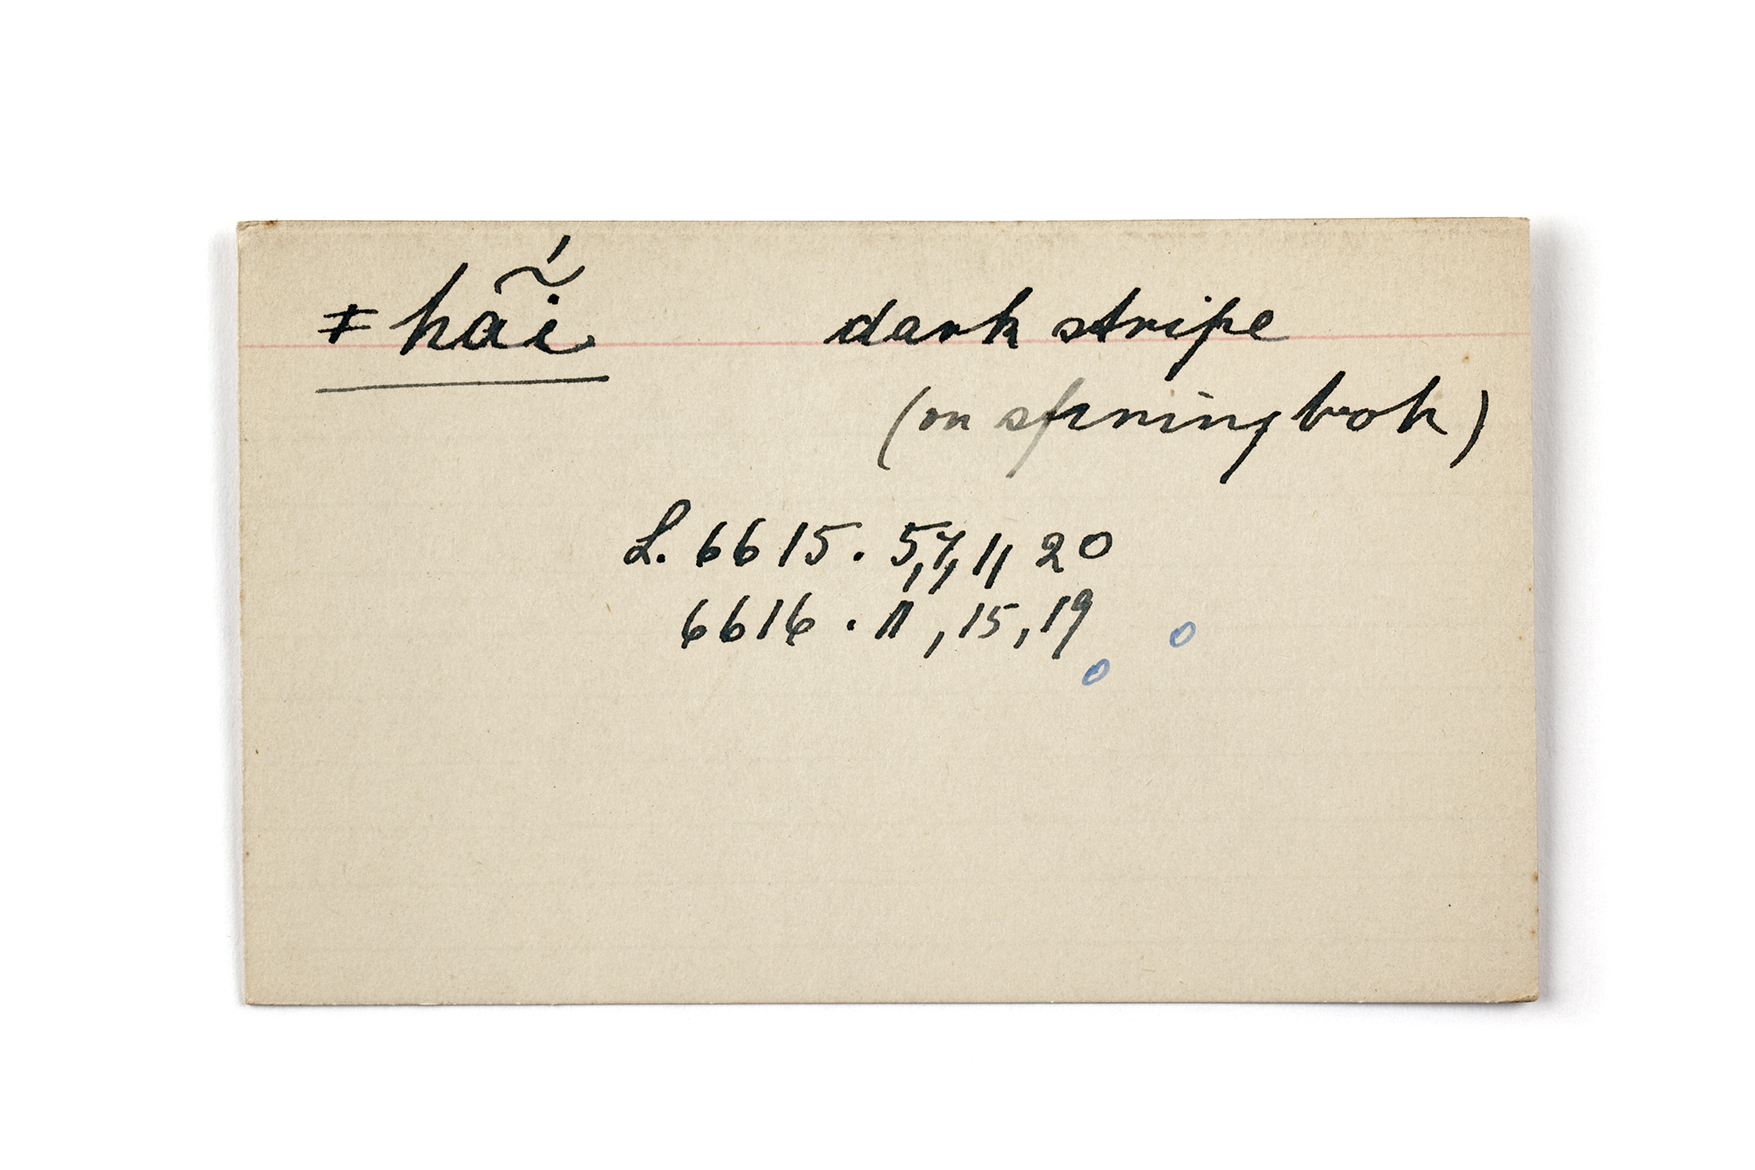 ǂhã́i dark stripe
(on springbok)
L. 6615. 5,7,11, 20
6616. 11, 15, 19